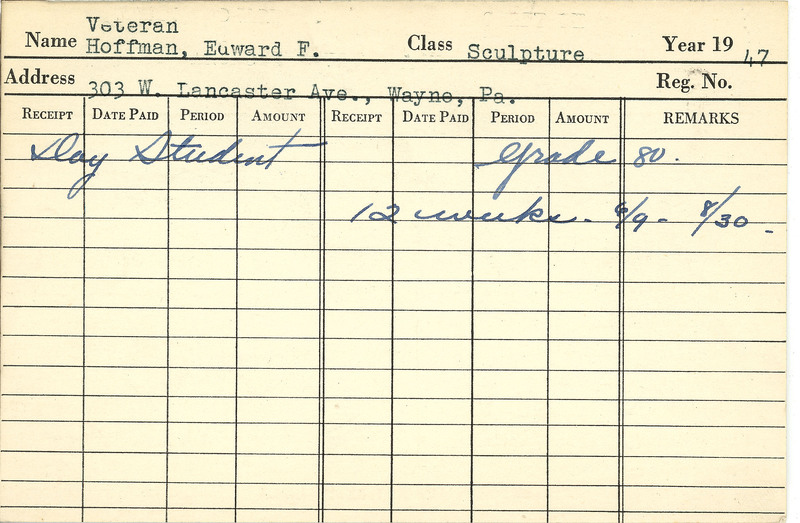 Veteran
Name Hoffman, Edward F. Class Sculpture Year 19 47
Address 303 W. Lancaster Ave., Wayne, Pa. Reg. No.
RECEIPT DATE PAID PERIOD AMOUNT RECEIPT DATE PAID PERIOD AMOUNT REMARKS
Day Student Grade 80.
12 weeks - 6/9 - 8/30 -